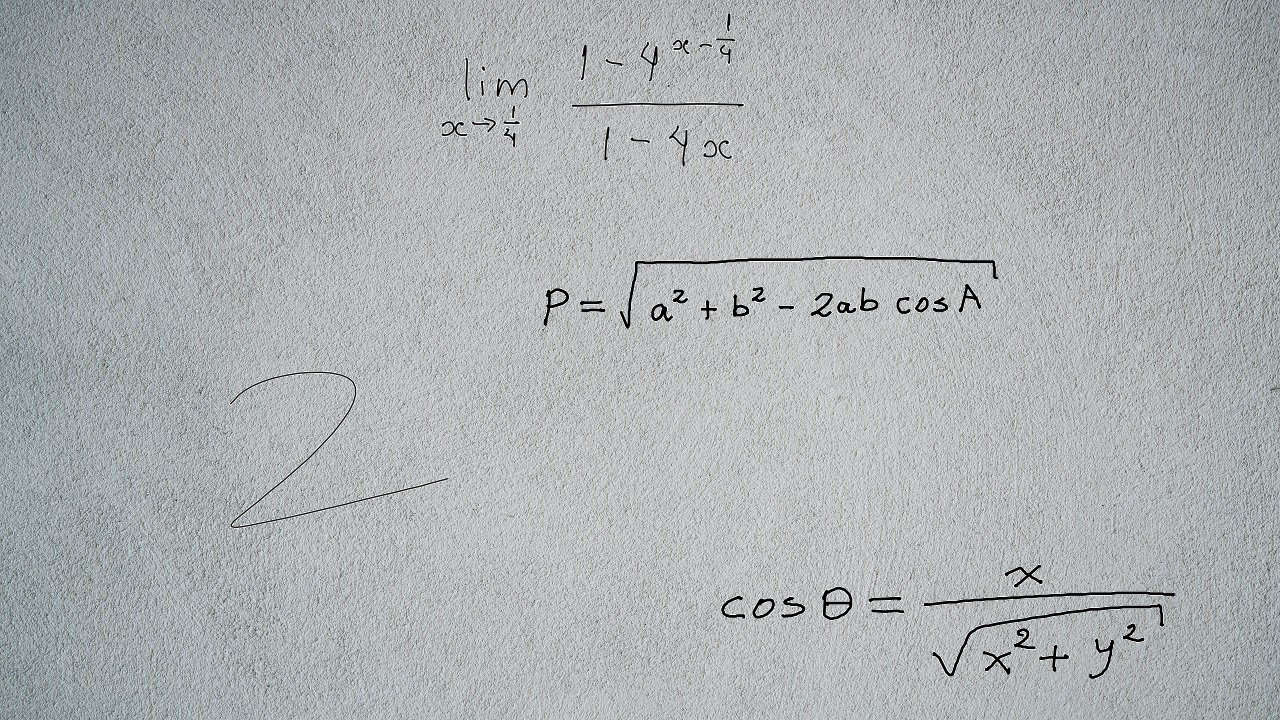 \lim_{x \to \frac{1}{4}} \frac{1 - 4^{x - \frac{1}{4}}}{1 - 4x}
P = \sqrt{a^2 + b^2 - 2ab \cos A}
2
\cos \theta = \frac{x}{\sqrt{x^2 + y^2}}